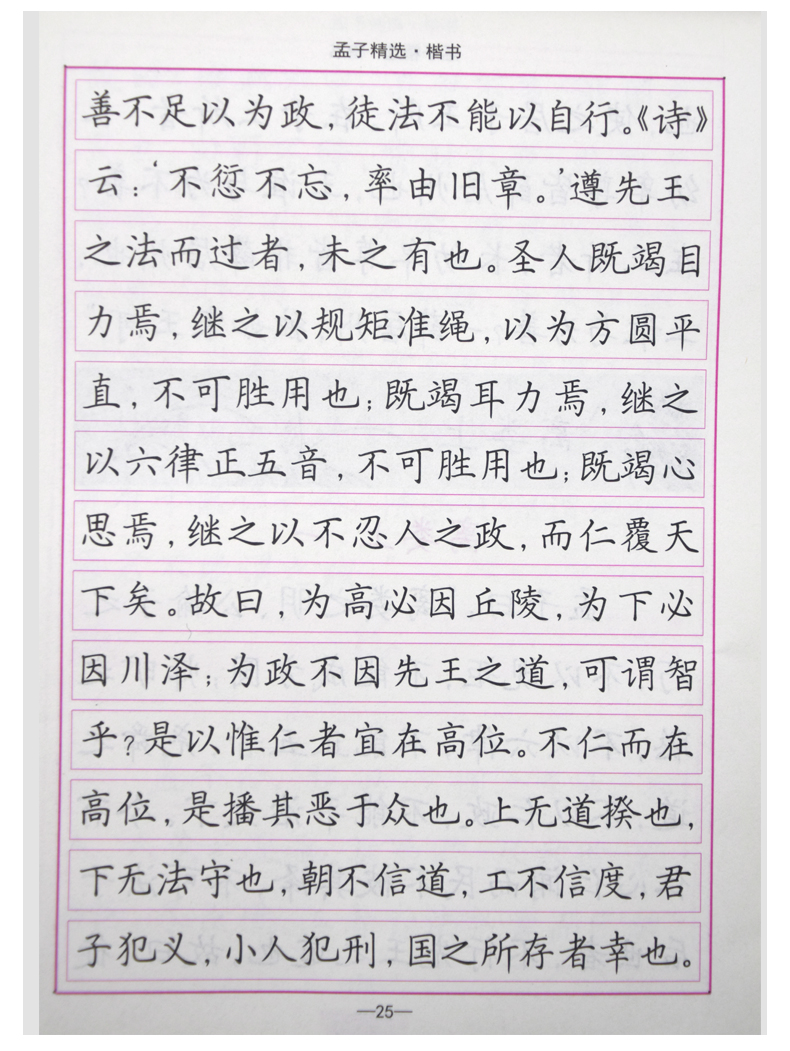 孟子精选·楷书
善不足以为政,徒法不能以自行。《诗》
云:‘不愆不忘,率由旧章。’遵先王
之法而过者,未之有也。圣人既竭目
力焉,继之以规矩准绳,以为方圆平
直,不可胜用也;既竭耳力焉,继之
以六律正五音,不可胜用也;既竭心
思焉,继之以不忍人之政,而仁覆天
下矣。故曰,为高必因丘陵,为下必
因川泽;为政不因先王之道,可谓智
乎?是以惟仁者宜在高位。不仁而在
高位,是播其恶于众也。上无道揆也,
下无法守也,朝不信道,工不信度,君
子犯义,小人犯刑,国之所存者幸也。
—25—